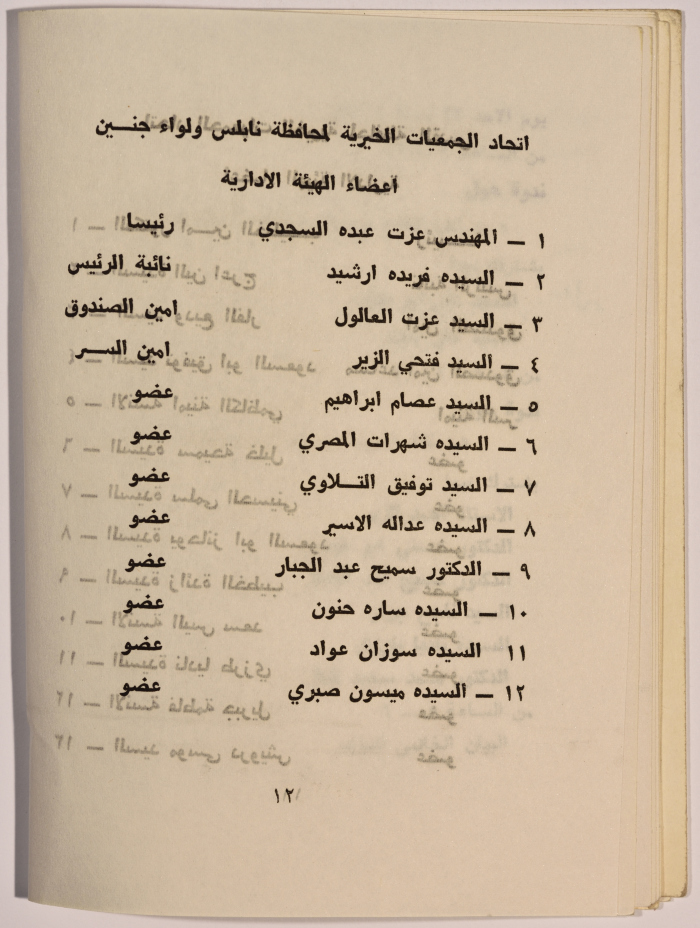 اتحاد الجمعيات الخيرية لمحافظة نابلس ولواء جنـــين
اعضاء الهيئة الادارية
١ ــ المهندس عزت عبده السجدي رئيسا
٢ ــ السيده فريده ارشيد نائبة الرئيس
٣ ــ السيد عزت العالول امين الصندوق
٤ ــ السيد فتحي الزير امين الســر
٥ ــ السيد عصام ابراهيم عضو
٦ ــ السيده شهرات المصري عضو
٧ ــ السيد توفيق التـــلاوي عضو
٨ ــ السيده عداله الاسير عضو
٩ ــ الدكتور سميح عبد الجبار عضو
١٠ ــ السيده ساره حنون عضو
١١ السيده سوزان عواد عضو
١٢ ــ السيده ميسون صبري عضو
١٢